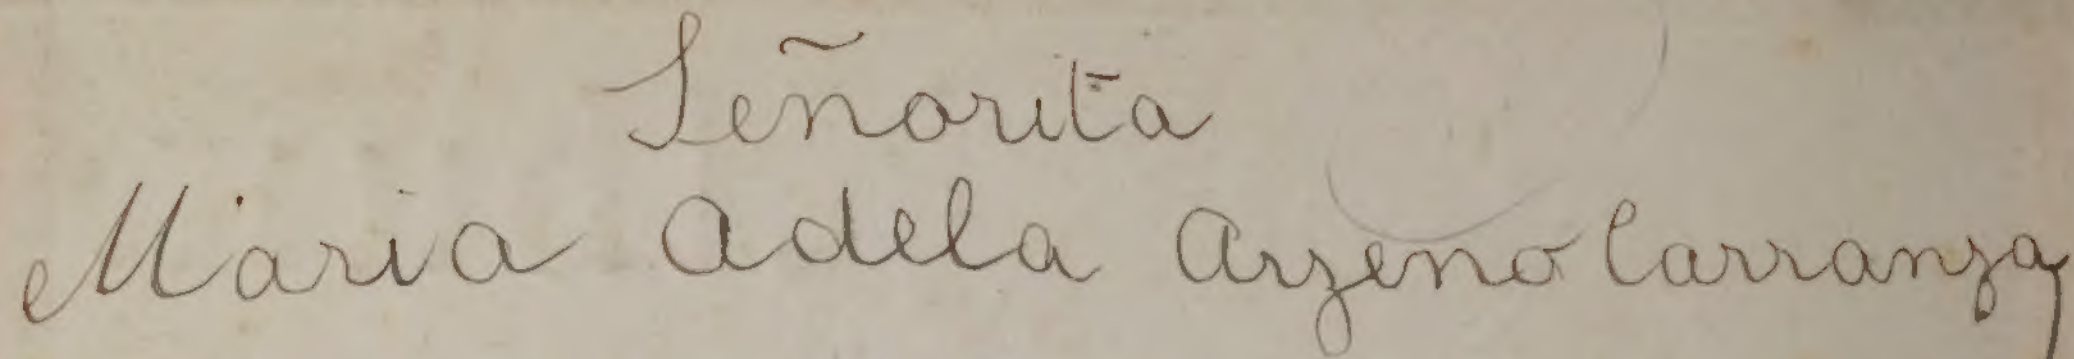 Señorita
Maria Adela Arzeno Carranza